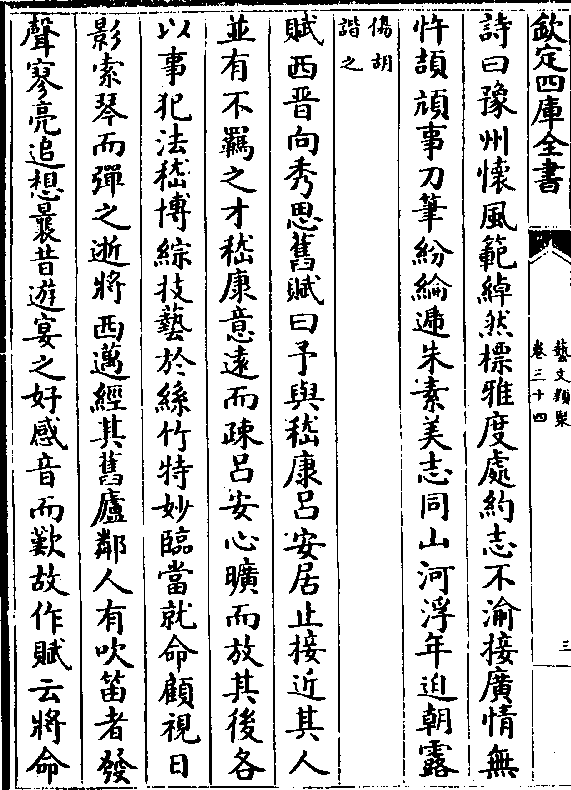 欽定四庫全書
藝文類聚
卷三十四
三
詩曰豫州懷風範綽然標雅度處約志不渝接廣情無
忤頡頏事刀筆紛綸遞朱素美志同山河浮年迫朝露
傷胡
諧之
賦西晋向秀思舊賦曰予與嵇康呂安居止接近其人
並有不羈之才嵇康意遠而疎呂安心曠而放其後各
以事犯法嵇博綜技藝於絲竹特妙臨當就命顧視日
影索琴而彈之逝將西邁經其舊廬鄰人有吹笛者發
聲寥亮追想曩昔遊宴之好感音而歎故作賦云將命